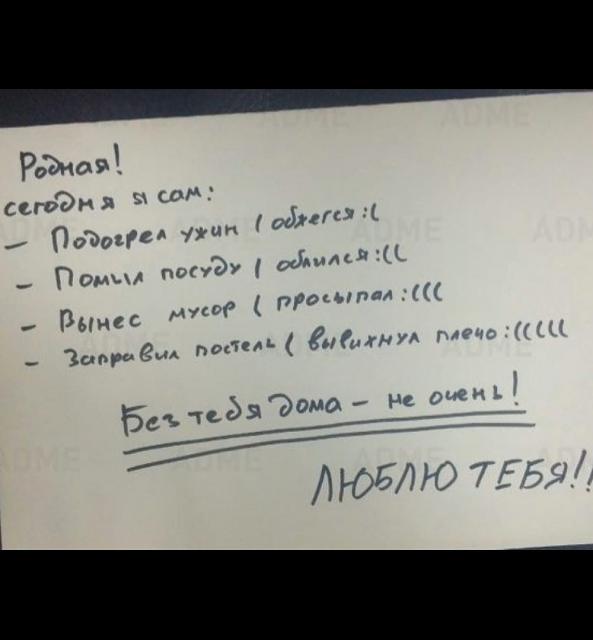 Родная!
сегодня я сам:
– Подогрел ужин ( обжегся :(
– Помыл посуду ( облился :((
– Вынес мусор ( просыпал :(((
– Заправил постель ( вывихнул плечо :(((((
Без тебя дома – не очень!
ЛЮБЛЮ ТЕБЯ!!
ADME ADME
ADME ADME ADME
ADME ADME
ADME ADME ADME